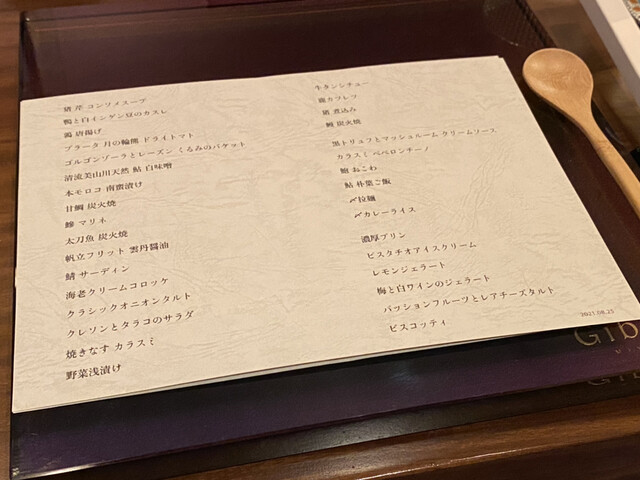 猪 芹 コンソメスープ
鴨と白インゲン豆のカスレ
鶉 唐揚げ
ブラータ 月の輪熊 ドライトマト
ゴルゴンゾーラとレーズン くるみのバケット
清流美山川天然 鮎 白味噌
本モロコ 南蛮漬け
甘鯛 炭火焼
鰺 マリネ
太刀魚 炭火焼
帆立フリット 雲丹醤油
鯖 サーディン
海老クリームコロッケ
クラシックオニオンタルト
クレソンとタラコのサラダ
焼きなす カラスミ
野菜浅漬け
牛タンシチュー
鹿カツレツ
猪 煮込み
炭火焼
黒トリュフとマッシュルーム クリームソース
カラスミ ペペロンチーノ
おこわ
鮎 朴葉ご飯
〆拉麺
〆カレーライス
濃厚プリン
ピスタチオアイスクリーム
レモンジェラート
梅と白ワインのジェラート
パッションフルーツとレアチーズタルト
ビスコッティ
2021.08.25
Gib